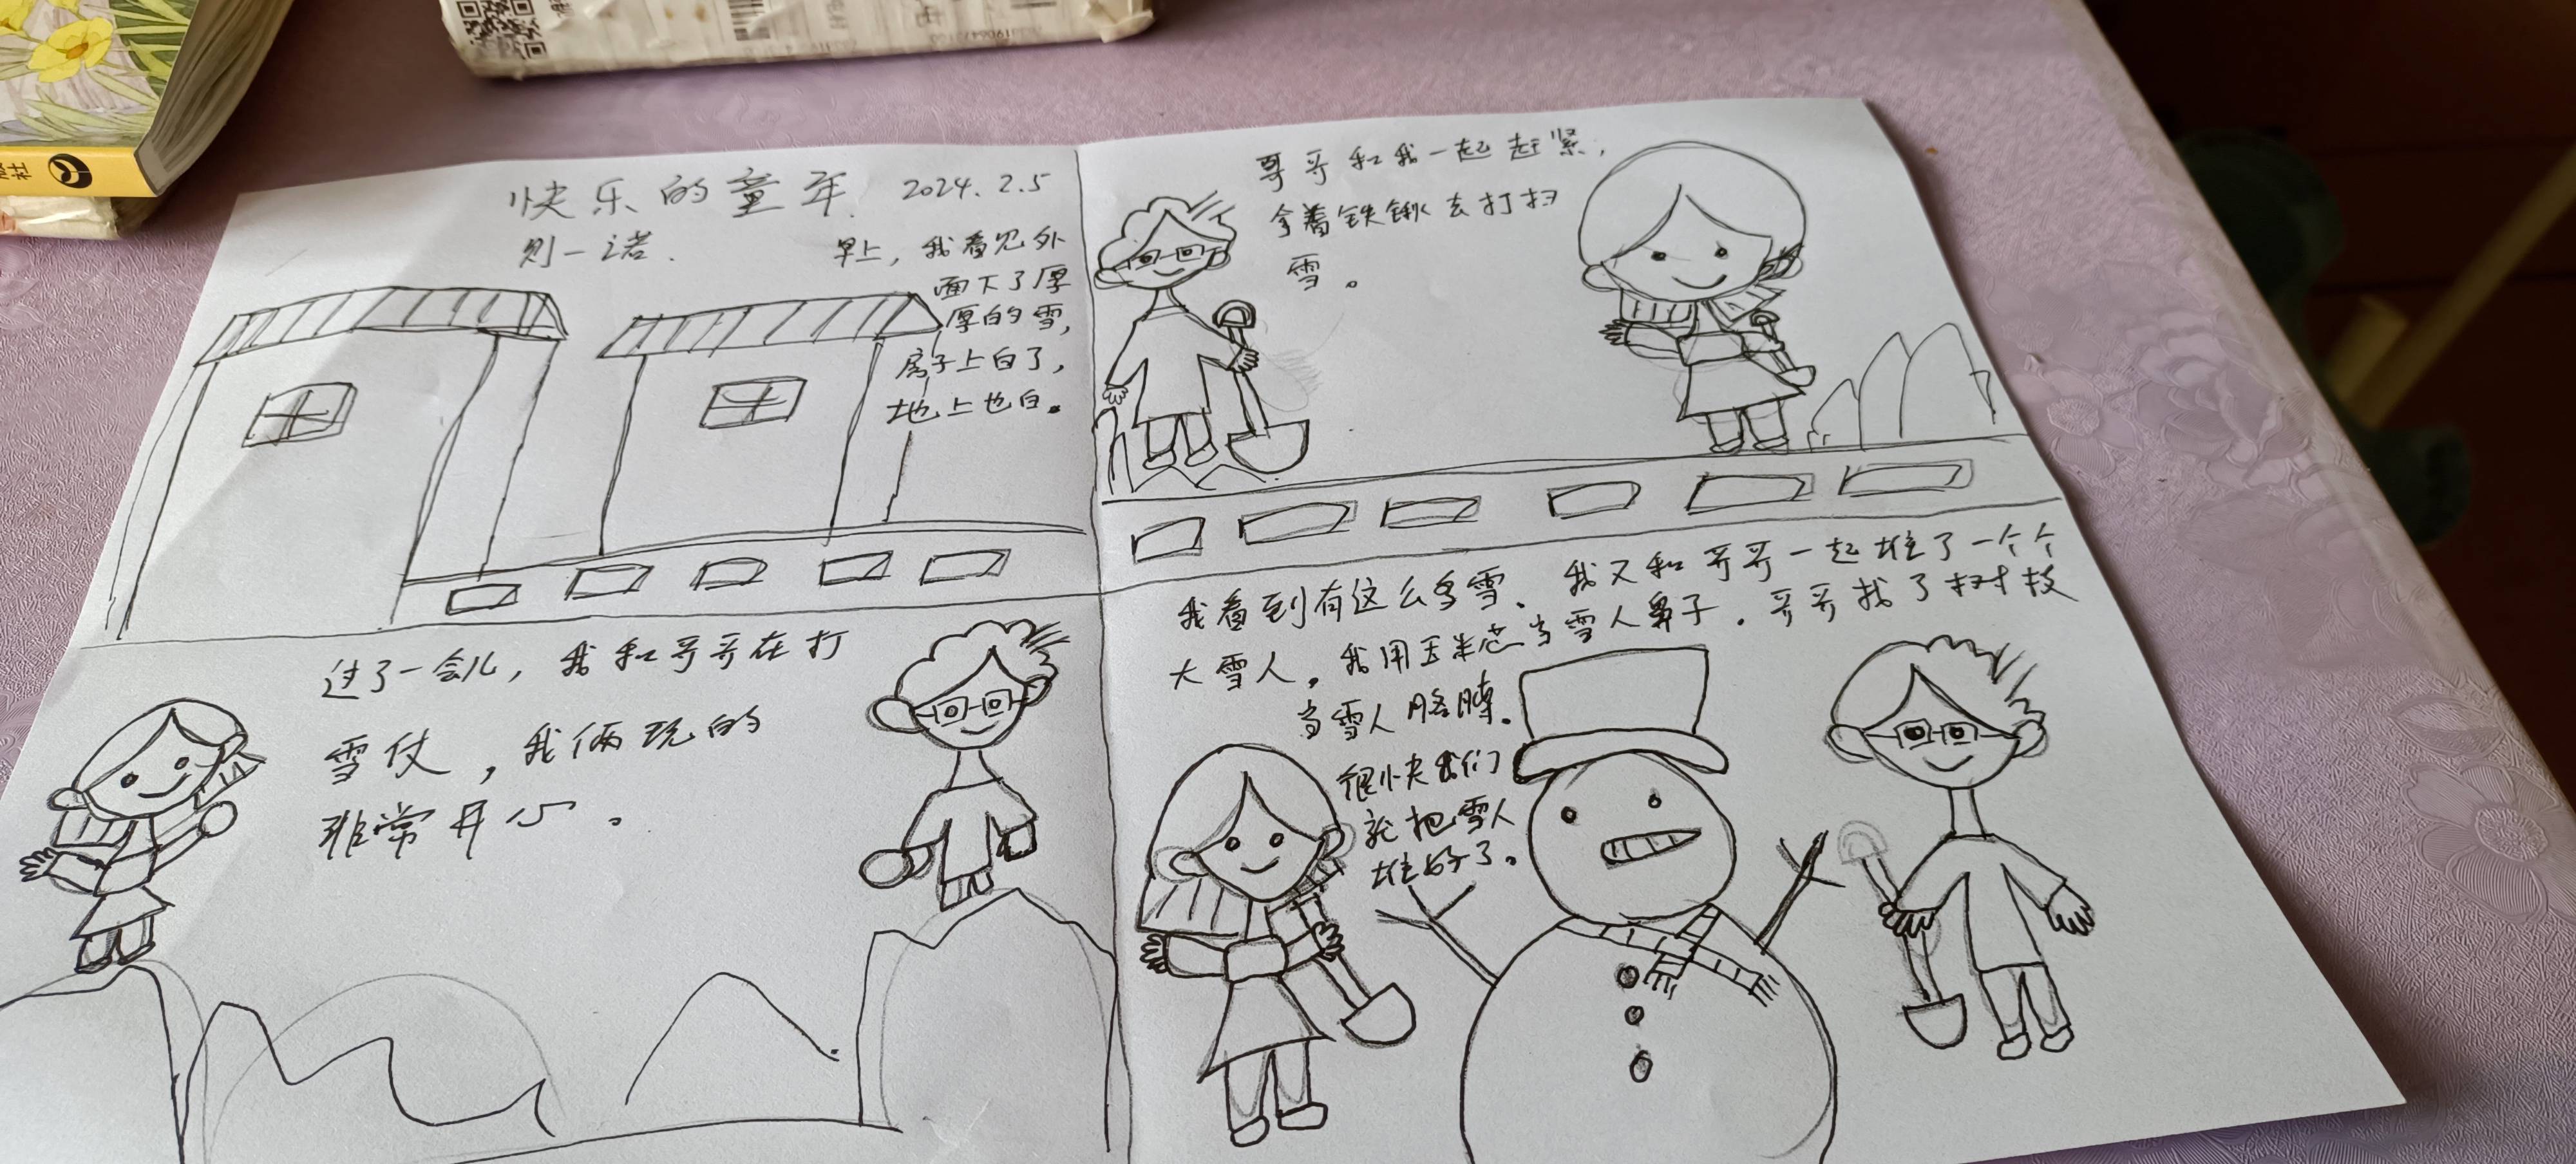 快乐的童年 2024.2.5
则一诺.
早上，我看见外
面下了厚
厚的雪，
房子上白了，
地上也白。
哥哥和我一起赶紧，
拿着铁锹去打扫
雪。
过了一会儿，我和哥哥在打
雪仗，我俩玩的
非常开心。
我看到有这么多雪、我又和哥哥一起堆了一个个
大雪人。我用玉米芯当雪人鼻子.哥哥找了树枝
当雪人胳膊。
很快我们
就把雪人
堆好了。
社